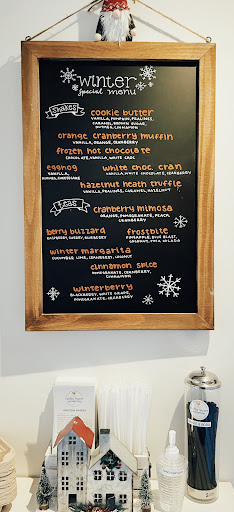 winter
special menu
shakes
cookie butter
vanilla, pumpkin, pralines,
caramel, brown sugar,
nutmeg, cinnamon
orange cranberry muffin
vanilla, orange, cranberry
frozen hot chocolate
chocolate, vanilla, white choc
eggnog
vanilla,
nutmeg, cheesecake
white choc cran
vanilla, white chocolate, cranberry
hazelnut heath truffle
vanilla, pralines, caramel, hazelnut
teas
cranberry mimosa
orange, pomegranate, peach,
cranberry
berry buzzard
raspberry, cherry, blueberry
frostbite
pineapple, blue blast,
coconut, piña colada
winter margarita
cucumber lime, cranberry, coconut
cinnamon spice
pomegranate, cranberry,
cinnamon
winterberry
blackberry, white grape,
pomegranate, cranberry